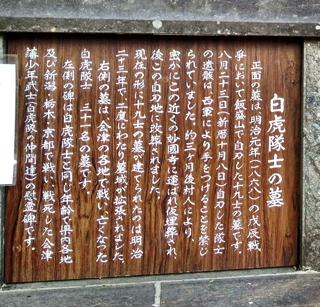 白虎隊士の墓
正面の墓は明治元年(一八六八)の戊辰戦
争において飯盛山で自刃した十九士の墓です。
八月二十三日(新暦十月八日)自刃した隊士
の遺骸は、西軍により手をつけることを禁じ
られていました。約三ヶ月後村人により、
密かにこの近くの妙國寺に運ばれ仮埋葬され、
後この自刃の地に改葬されました。
現在の形に十九士の墓が建てられたのは明治
二十三年で、二度にわたり墓域が拡張されました。
右側の墓は、会津の各地で戦い、亡くなった
白虎隊士 三十一名の墓です。
左側の碑は白虎隊士と同じ年齢で県内各地
及び新潟・栃木・京都で戦い、戦死した会津
藩少年武士(白虎隊の仲間達)の慰霊碑です。